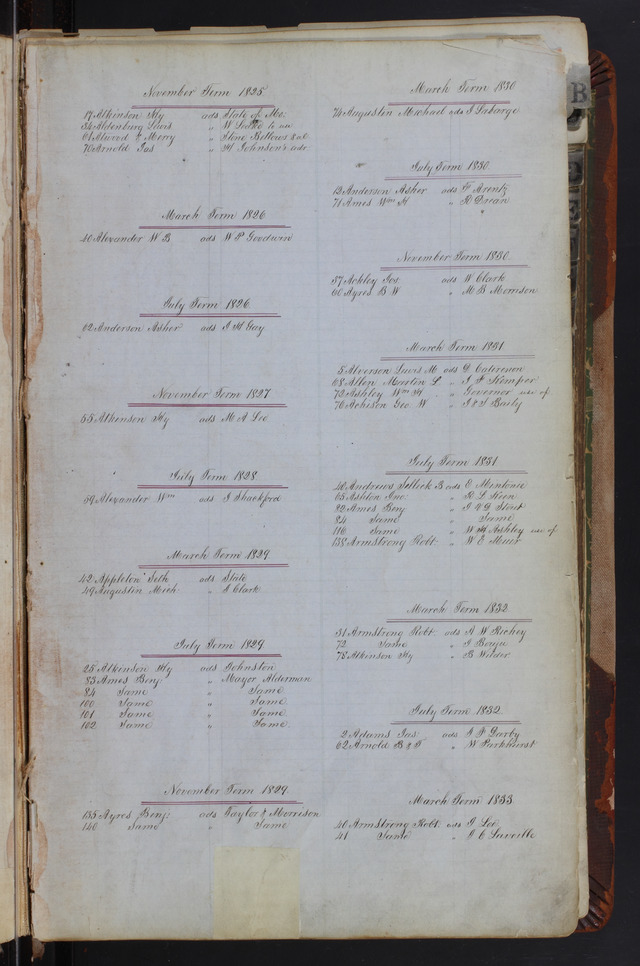 November Term 1825
17 Atkinson Hy ads State of Mo:
34 Aldenburg Lewis " W Locke to use
61 Atwood & Merry " Stone Bellows & al
70 Arnold Jas " H Johnson's adr
March Term 1826
40 Alexander W B ads W P Goodwin
July Term 1826
92 Anderson Asher ads J H Gay
November Term 1827
55 Atkinson Hy ads M A Lee
July Term 1828
59 Alexander Wm ads J Shackford
March Term 1829
42 Appleton Seth ads State
49 Augustin Mich " J Clark
July Term 1829
25 Atkinson Hy ads Johnston
83 Ames Benj: " Mayor Alderman
84 Same " Same
100 Same " Same
101 Same " Same
102 Same " Same
November Term 1829
135 Ayres Benj: ads Taylor & Morrison
140 Same " Same
March Term 1830
74 Augustin Michael ads J Labarge
July Term 1830
12 Anderson Asher ads F Arentz
71 Ames Wm H " R Duean
November Term 1830.
37 Ackley Jos ads W Clark
60 Ayres B W " M B Morrison
March Term 1831
5 Alverson Lewis M ads G Catercnon
68 Allen Martin L " J F Kemper
73 Ashley Wm H " Governor use of
76 Achison Geo. W " J & S Baily
July Term 1831
40 Andrews Sellick B ads E Mentonie
65 Ashton Jno. " R L Keen
20 Ames Benj " J & G Stout
84 Same " Same
116 Same " W H Ashley use of
138 Armstrong Robt: " W E Muir
March Term 1832
31 Armstrong Robt ads A W Richey
72 Same " J Bouju
78 Atkinson Hy " B Wilder
July Term 1832.
2 Adams Jas ads J F Darby
62 Arnold B & F " W Parkhurst
March Term 1833
40 Armstrong Robt: ads J Lee
41 Same " J C Laveille
B